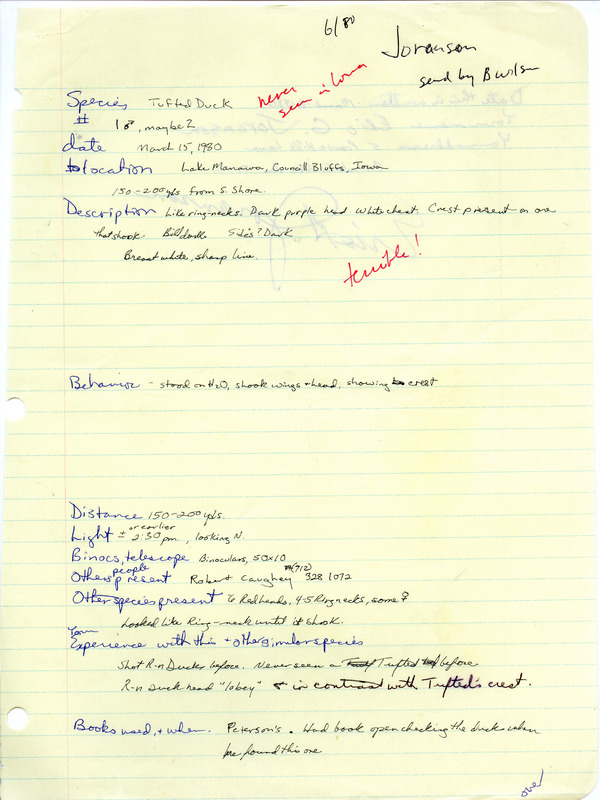 6/80
Joranson
send by B Wilson
never
seen in Iowa
Species Tufted Duck
# 1♂, maybe 2
date March 15, 1980
location Lake Manawa, Councill Bluffs, Iowa
150-200 yds from S. Shore.
Description Like ring-necks. Dark purple head White chest. Crest present on one
that shook. Bill Sides? Dark
Breast white, sharp line.
terrible!
Behavior - stood on H2O, shook wings + head, showing crest
Distance 150-200 yds.
or earlier
Light ± 2:30 pm, looking N.
Binocs, telescope Binoculars, 50x10
people
Others present Robert Caughey (712) 328 1072
Other species present 6 Redheads, 4-5 Ringnecks, some ♀
Looked like Ring-neck until it shook.
Your
Experience with this + other similar species
Shot R-n Ducks before. Never seen a Tufted before.
R-n Duck head "lobey" & in contrast with Tufted's crest.
Books used, + when. Peterson's. Had book open checking the ducks when
he found this one
over